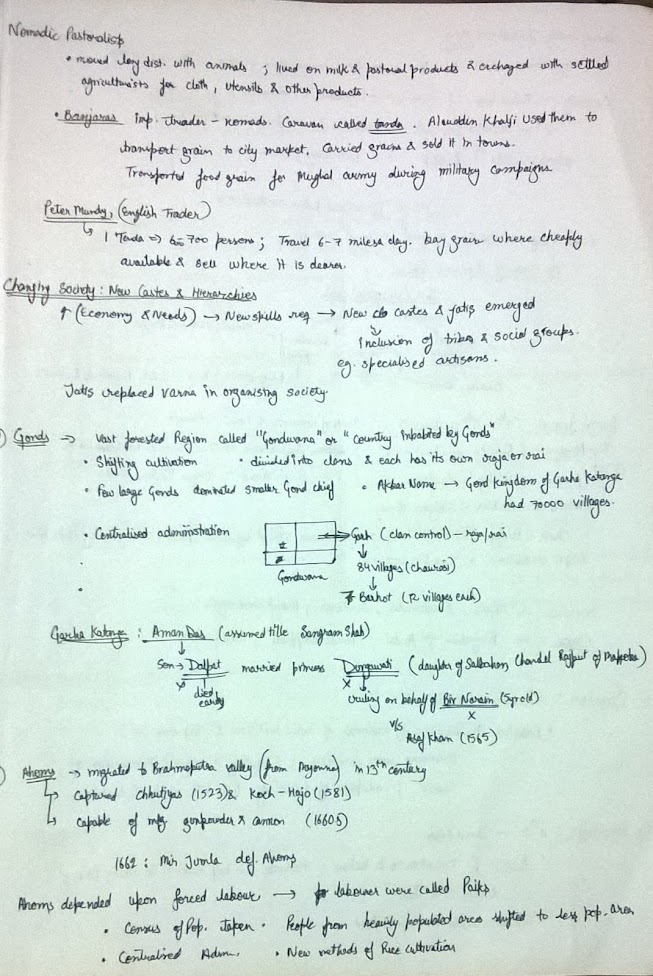 Nomadic Pastoralists
• moved long dist. with animals ; lived on milk & pastoral products & exchaged with settled
agriculturists for cloth, utensils & other products.
• Banjaras imp. trader - nomads. Caravan called tanda. Alauddin Khalji used them to
transport grain to city market. Carried grains & sold it in towns.
Transported food grain for Mughal army during military campaigns.
Peter Mundy, (English Trader)
↳ 1 Tanda ⇒ 6-700 persons ; Travel 6-7 miles a day. buy grain where cheaply
available & sell where it is dearer.
Changing Society : New Castes & Hierarchies
↑ (Economy & Needs) → New skills req → New castes & jatis emerged
↓ Inclusion of tribes & social groups.
eg. specialised artisons.
Jatis replaced varna in organising society.
Gonds → Vast forested Region called "Gondwana" or "Country inhabited by Gonds"
• Shifting cultivation • divided into clans & each has its own raja or rai
• Few large Gonds dominated smaller Gond chief • Akbar Nama → Gond Kingdom of Garha Katanga
had 70000 villages.
• Centralised administration → Garh (clan control) - raja/rai
↓
84 villages (chaurasi)
Gondwana ↓
Barhot (12 villages each)
Garha Katanga : Aman Das (assumed title Sangram Shah)
↓
Son → Dalpat married princess Durgawati (daughter of Salbahan, Chandel Rajput of Mahoba)
x died early x ruling on behalf of Bir Narain (5yr old)
x
v/s Asaf Khan (1565)
Ahoms → migrated to Brahmaputra valley (from Myanmar) in 13th century
↳ captured chhutiyas (1523) & Koch-Hajo (1581)
↳ capable of mfg gunpowder & cannon (1660s)
1662 : Mir Jumla def. Ahoms
Ahoms depended upon forced labour → labourers were called Paiks
• Census of Pop. taken • People from heavily populated areas shifted to less pop. area
• Centralised Admn. • New methods of Rice cultivation